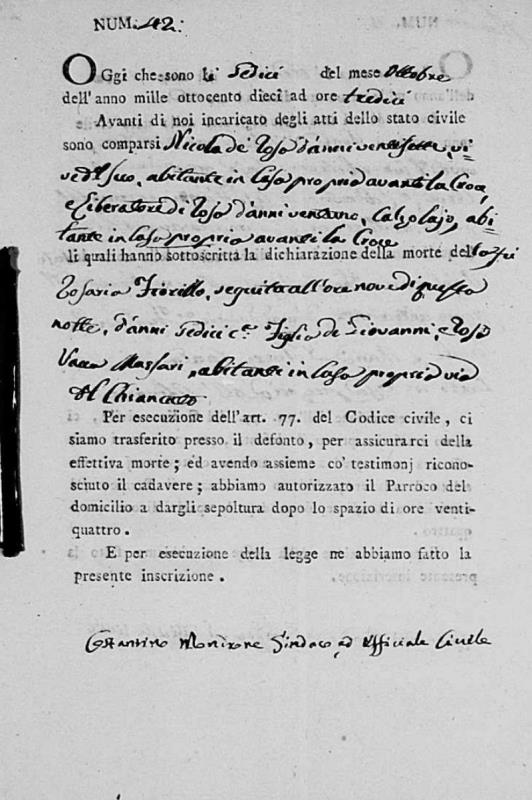 NUM. 42.
OGgi che sono li Sedici del mese Ottobre
dell'anno mille ottocento dieci ad ore tredici
Avanti di noi incaricato degli atti dello stato civile
sono comparsi Nicola de Roso d'anni ventisette, vi-
ve del suo, abitante in Casa propria avanti la Croce,
e Liberatore di Roso d'anni ventuno, Calzolajo, abi-
tante in Casa propria avanti la Croce
li quali hanno sottoscritta la dichiarazione della morte del
Rosaria Fiorillo, seguita all'ore nove di questa
notte, d'anni Sedici c.ª Figlia de Giovanni, e Rosa
Vacca Massari, abitante in Casa propria via
del
Per esecuzione dell'art. 77. del Codice civile, ci
siamo trasferito presso il defonto, per assicurarci della
effettiva morte; ed avendo assieme co' testimonj ricono-
sciuto il cadavere; abbiamo autorizzato il Parroco del
domicilio a dargli sepoltura dopo lo spazio di ore venti-
quattro.
E per esecuzione della legge ne abbiamo fatto la
presente inscrizione.
Costantino Sindaco ed Officiale Civile